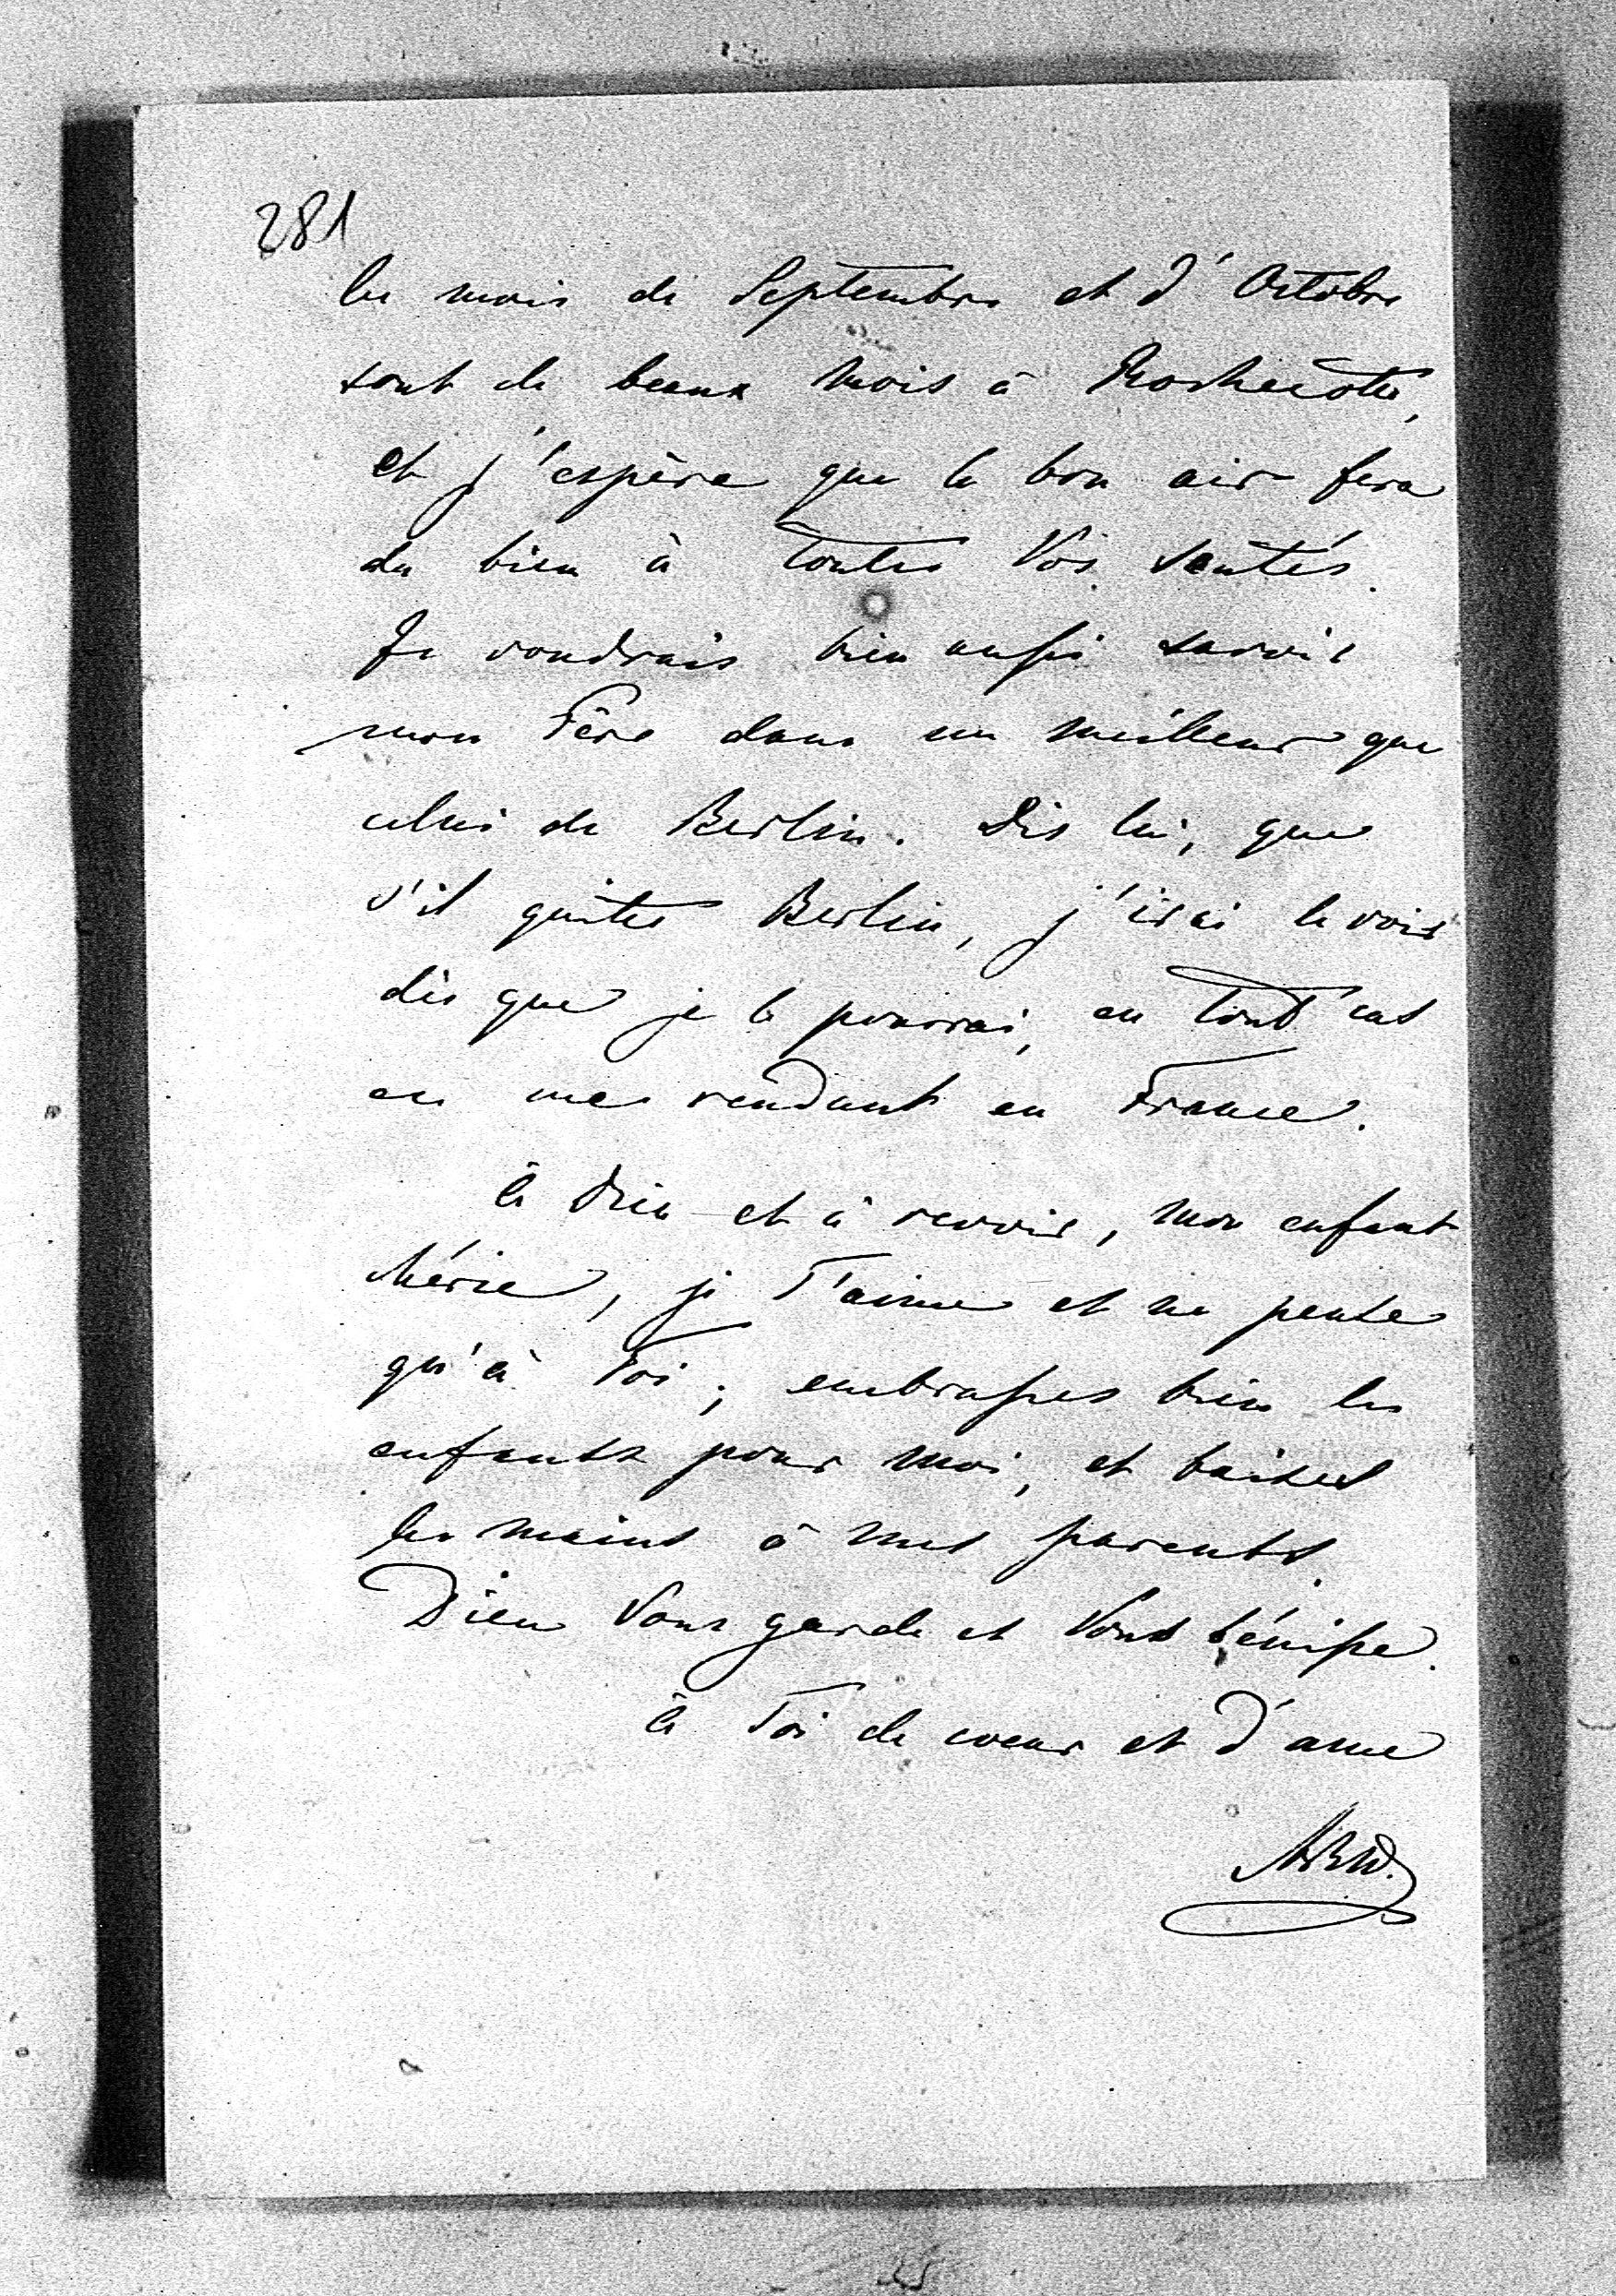 281
les mois de Septembre et d'Octobre
sont de beaux mois à Rochecotte,
et j'espère que le bon air fera
du bien à toutes Vos santés.
Je voudrais bien aussi savoir
mon Père dans un meilleur que
celui de Berlin. Dis lui, que
s'il quitte Berlin, j'irai le voir
dès que je le pourrai, en tout cas
en me rendant en France.
à Dieu et à revoir, mon enfant
chérie, je T'aime et ne pense
qu'à Toi; embrasses bien les
enfants pour moi, et baises
les mains à mes parents.
Dieu Vous garde et Vous bénisse.
à Toi de coeur et d'ame